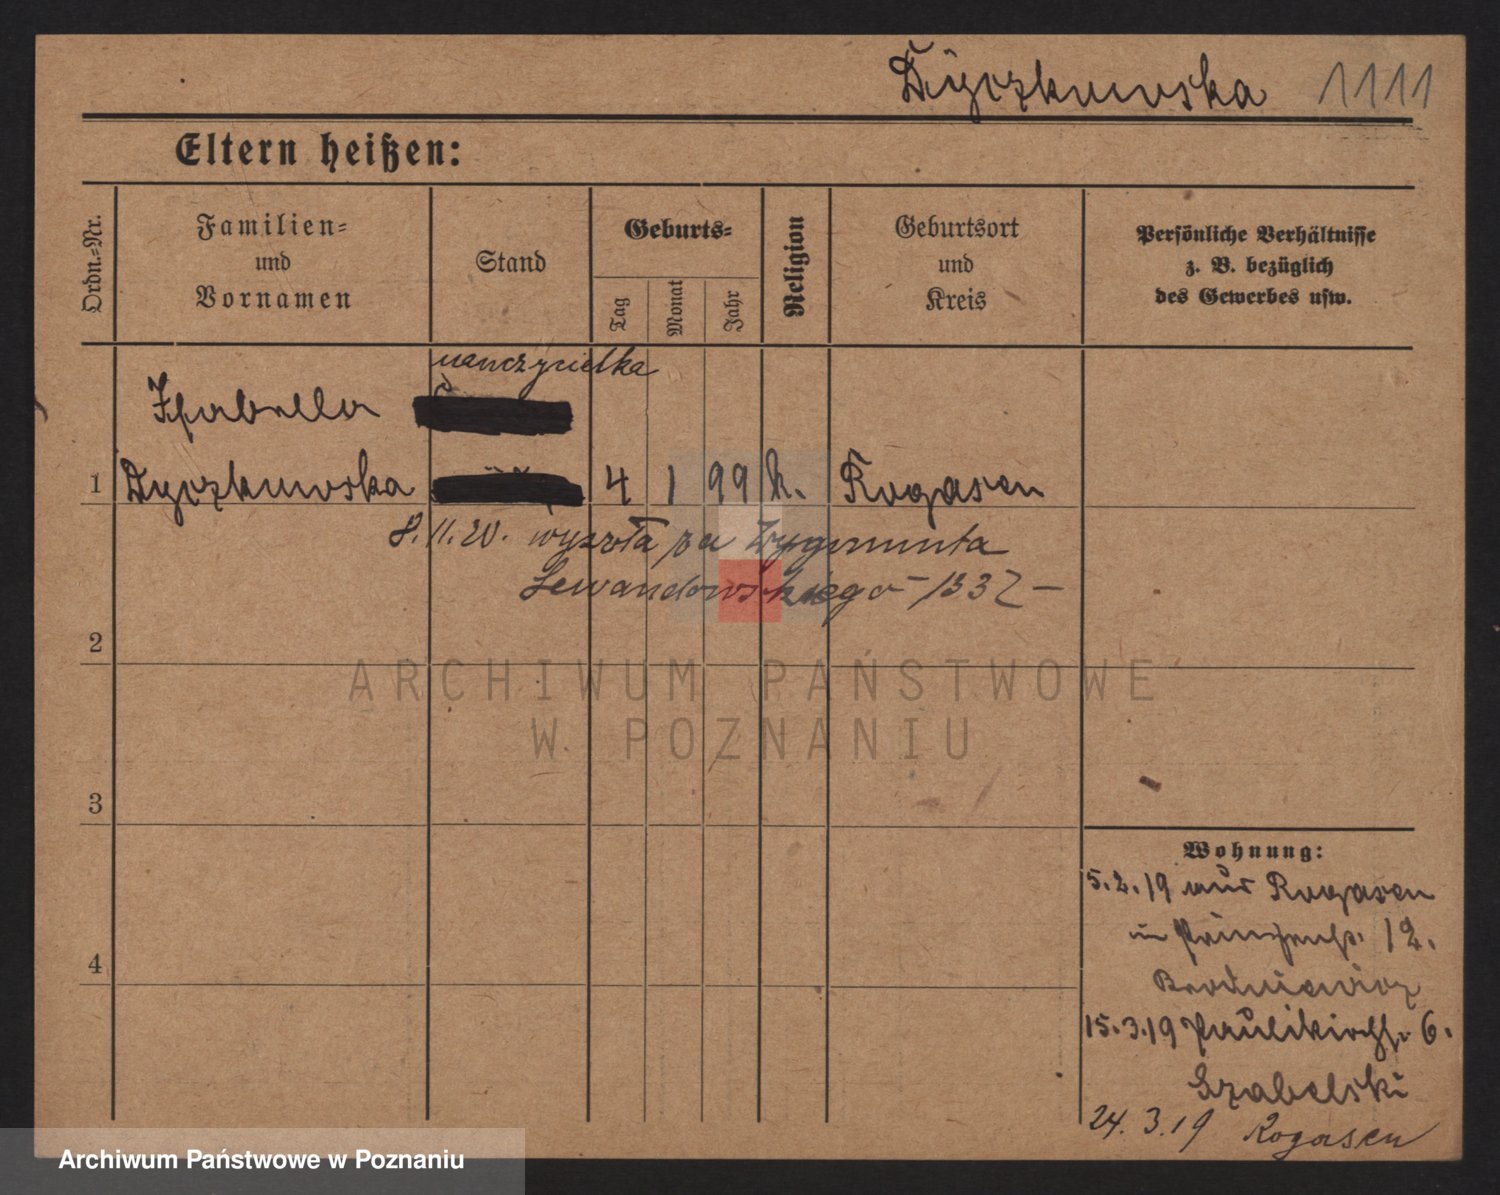 Dyczkowska 1111
Eltern heißen:
Ordn.-Nr.
Familien- und Vornamen
Stand
Geburts-
Tag
Monat
Jahr
Religion
Geburtsort und Kreis
Persönliche Verhältnisse
z. B. bezüglich
des Gewerbes usw.
nauczycielka
Isabella
1 Dyczkowska 4 1 99 k. Rogasen
8.11.20. wyszła za Zygmunta
Lewandowskiego – 1332 –
2
3
4
Wohnung:
5.2.19 aus Rogasen
in Prinzenstr. 12.
15.3.19 Paulikirchstr. 6.
Szabelski
24.3.19 Rogasen
ARCHIWUM PAŃSTWOWE
W POZNANIU
Archiwum Państwowe w Poznaniu